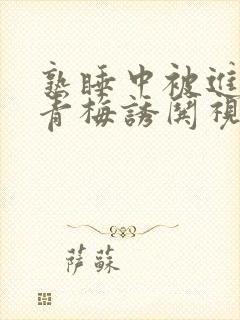 熟睡中被進
青梅誘関視
萨蘇